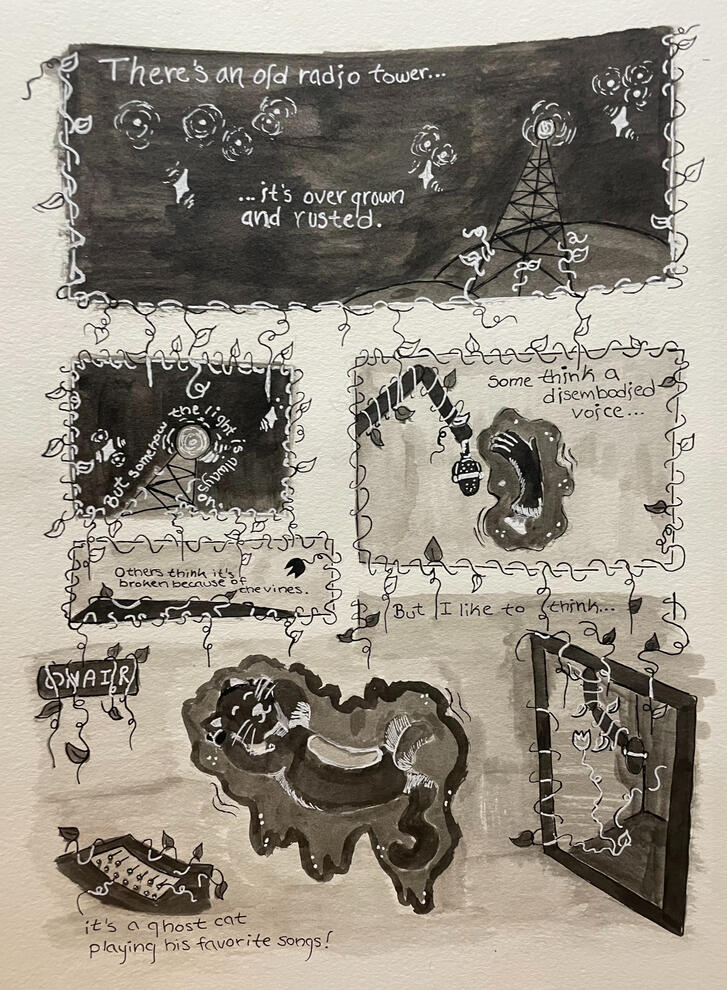 There's an old radio tower...
...it's overgrown
and rusted.
But somehow the light is always on.
some think a
disembodied
voice...
Others think it's
broken because of the vines.
But I like to think...
ON AIR
it's a ghost cat
playing his favorite songs!